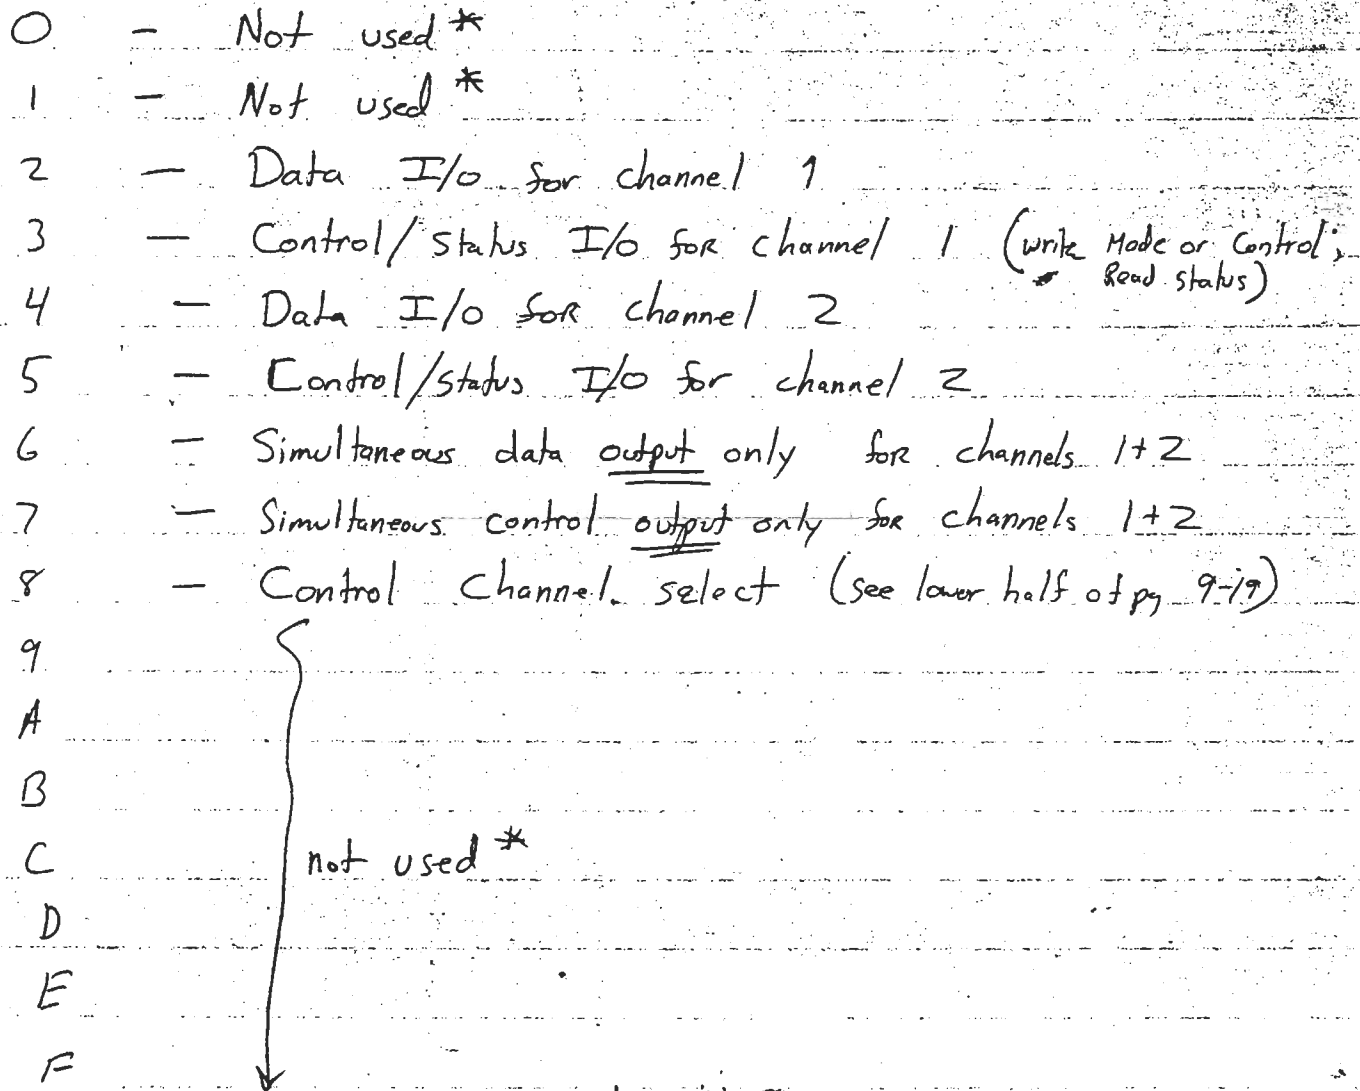 0 - Not used *
1 - Not used *
2 - Data I/O for channel 1
3 - Control/Status I/O for channel 1 (write Mode or Control;
Read status)
4 - Data I/O for channel 2
5 - Control/Status I/O for channel 2
6 - Simultaneous data output only for channels 1+2
7 - Simultaneous control output only for channels 1+2
8 - Control Channel select (see lower half of pg 9-19)
9
A
B
C not used *
D
E
F